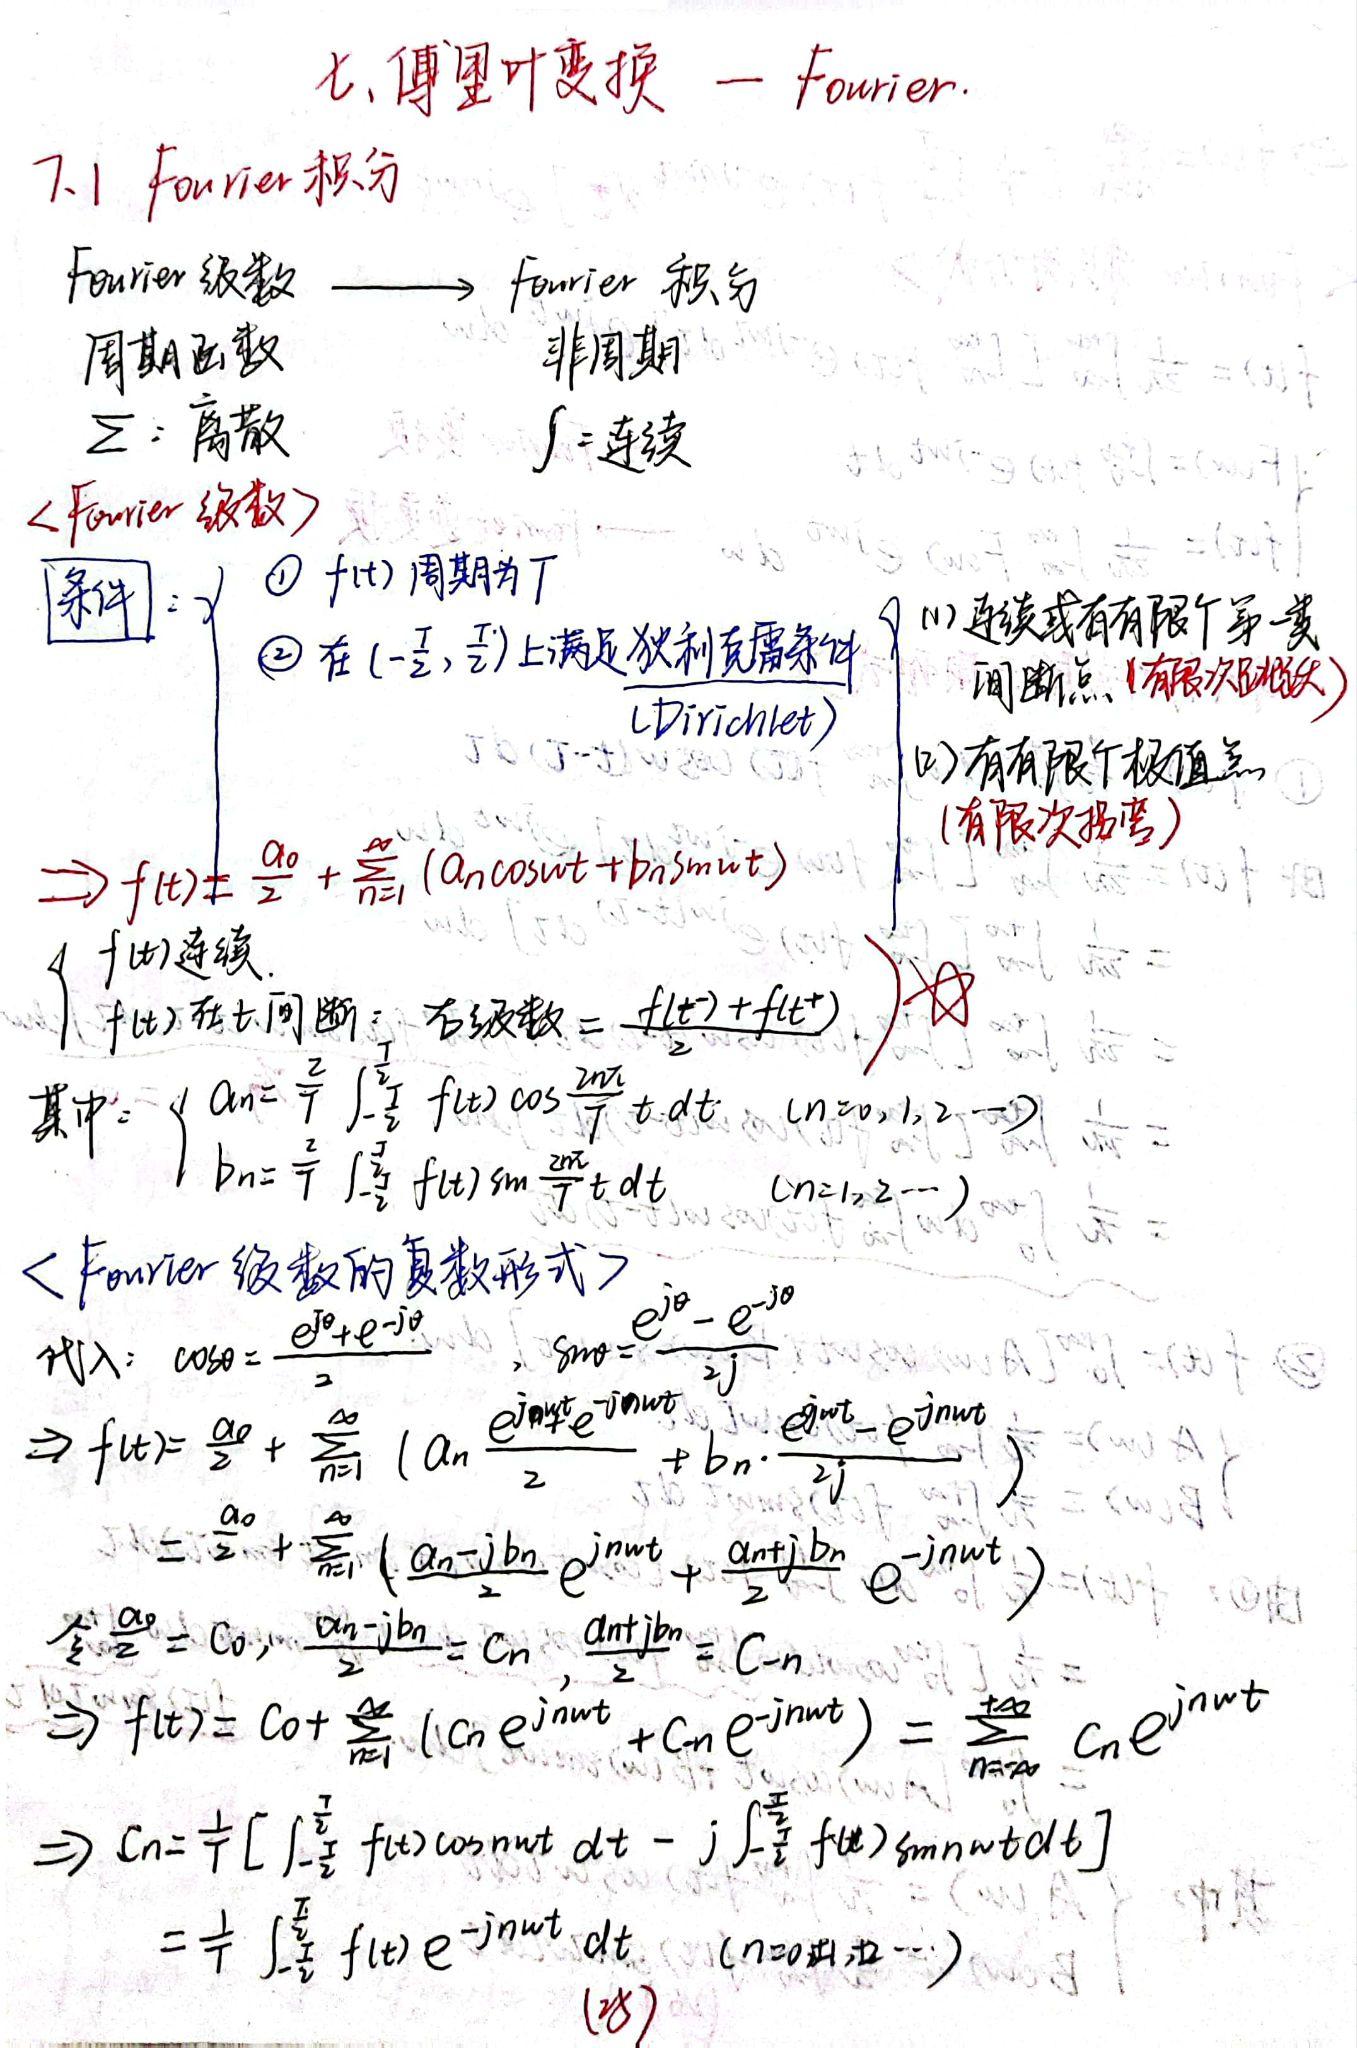 七、傅里叶变换 — Fourier.
7.1 Fourier 积分
Fourier 级数 ⟶ Fourier 积分
周期函数 非周期
Σ：离散 ∫：连续
<Fourier 级数>
条件：{ ① f(t) 周期为T
② 在 (-T/2, T/2) 上满足狄利克雷条件
(Dirichlet)
{ (1) 连续或有有限个第一类
间断点、(有限次)
(2) 有有限个极值点
(有限次拐弯)
⇒ f(t) = a₀/2 + Σ_{n=1}^{∞} (aₙcosωt + bₙsinωt)
{ f(t) 连续.
f(t) 在 t 间断： 右级数 = (f(t⁻) + f(t⁺))/2 ) ☆
其中：{ aₙ = 2/T ∫_{-T/2}^{T/2} f(t) cos (2nπ/T) t·dt. (n=0, 1, 2 …)
bₙ = 2/T ∫_{-T/2}^{T/2} f(t) sin (2nπ/T) t dt (n=1, 2 …)
<Fourier 级数的复数形式>
代入： cosθ = (e^{jθ} + e^{-jθ})/2 , sinθ = (e^{jθ} - e^{-jθ})/2j
⇒ f(t) = a₀/2 + Σ_{n=1}^{∞} (aₙ (e^{jnωt} + e^{-jnωt})/2 + bₙ· (e^{jnωt} - e^{-jnωt})/2j)
= a₀/2 + Σ_{n=1}^{∞} ((aₙ - jbₙ)/2 e^{jnωt} + (aₙ + jbₙ)/2 e^{-jnωt})
令 a₀/2 = C₀, (aₙ - jbₙ)/2 = Cₙ, (aₙ + jbₙ)/2 = C₋ₙ
⇒ f(t) = C₀ + Σ_{n=1}^{∞} (Cₙ e^{jnωt} + C₋ₙ e^{-jnωt}) = Σ_{n=-∞}^{+∞} Cₙ e^{jnωt}
⇒ Cₙ = 1/T [∫_{-T/2}^{T/2} f(t) cosnωt dt - j ∫_{-T/2}^{T/2} f(t) sinnωt dt]
= 1/T ∫_{-T/2}^{T/2} f(t) e^{-jnωt} dt (n=0, ±1, ±2 …)